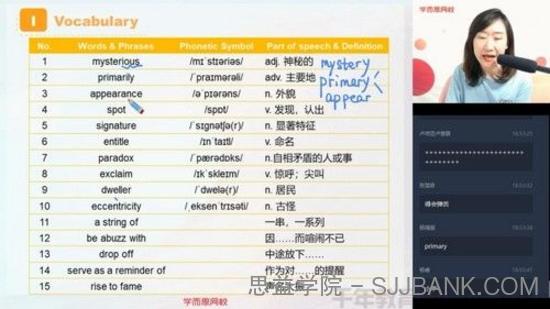 学而思网校
I Vocabulary
No. Words & Phrases Phonetic Symbol Part of speech & Definition
1 mysterious /mɪˈstɪəriəs/ adj. 神秘的 mystery
2 primarily /ˈpraɪmərəli/ adv. 主要地 primary
3 appearance /əˈpɪərəns/ n. 外貌 appear
4 spot /spɒt/ v. 发现，认出
5 signature /ˈsɪɡnətʃə(r)/ n. 显著特征
6 entitle /ɪnˈtaɪtl/ v. 命名
7 paradox /ˈpærədɒks/ n.自相矛盾的人或事
8 exclaim /ɪkˈskleɪm/ v. 惊呼；尖叫
9 dweller /ˈdwelə(r)/ n. 居民
10 eccentricity /ˌeksenˈtrɪsəti/ n. 古怪
11 a string of 一串，一系列
12 be abuzz with 因……而喧闹不已
13 drop off 中途放下……
14 serve as a reminder of 作为对……的提醒
15 rise to fame 声名大振
学而思网校
primary
思益学院 - SJJBANK.COM